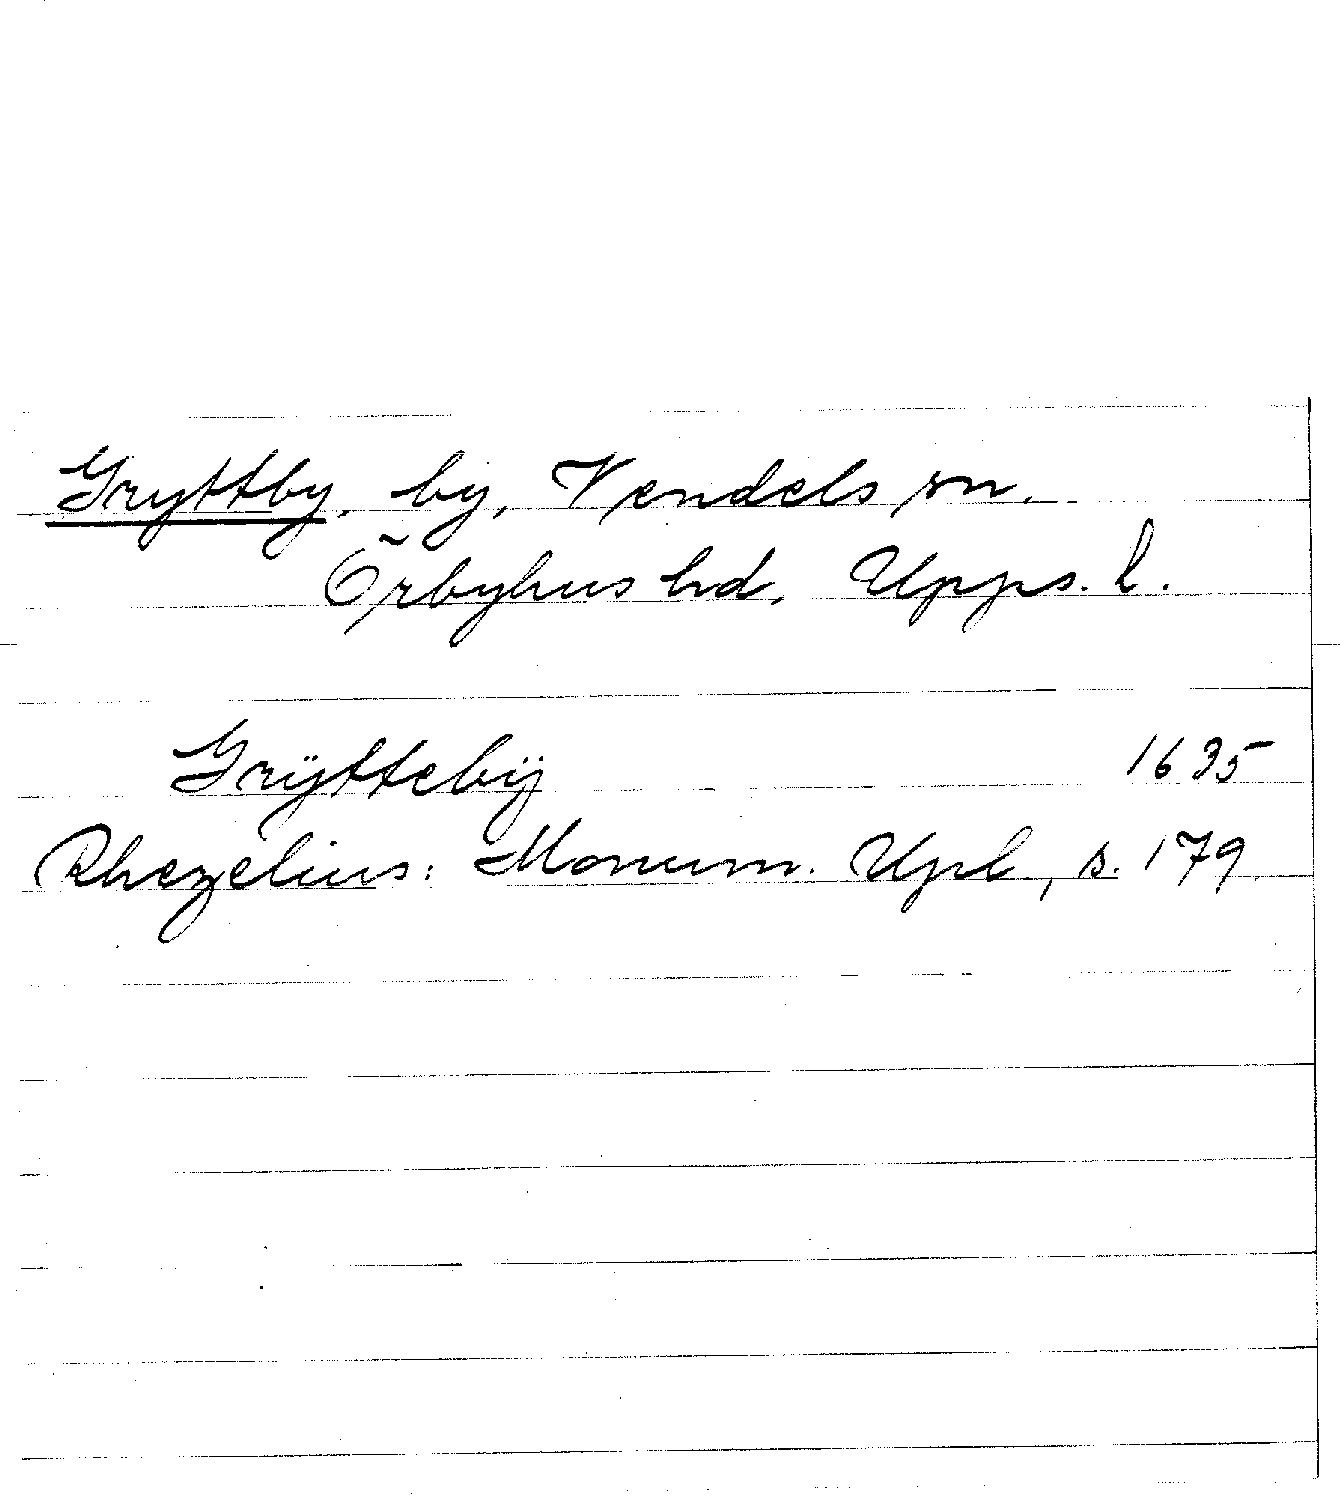 Gryttby, by, Vendels sn.
Örbyhus hd, Upps. l.
Grÿttebÿ 1635
Rhezelius: Monum. Upl, s. 179